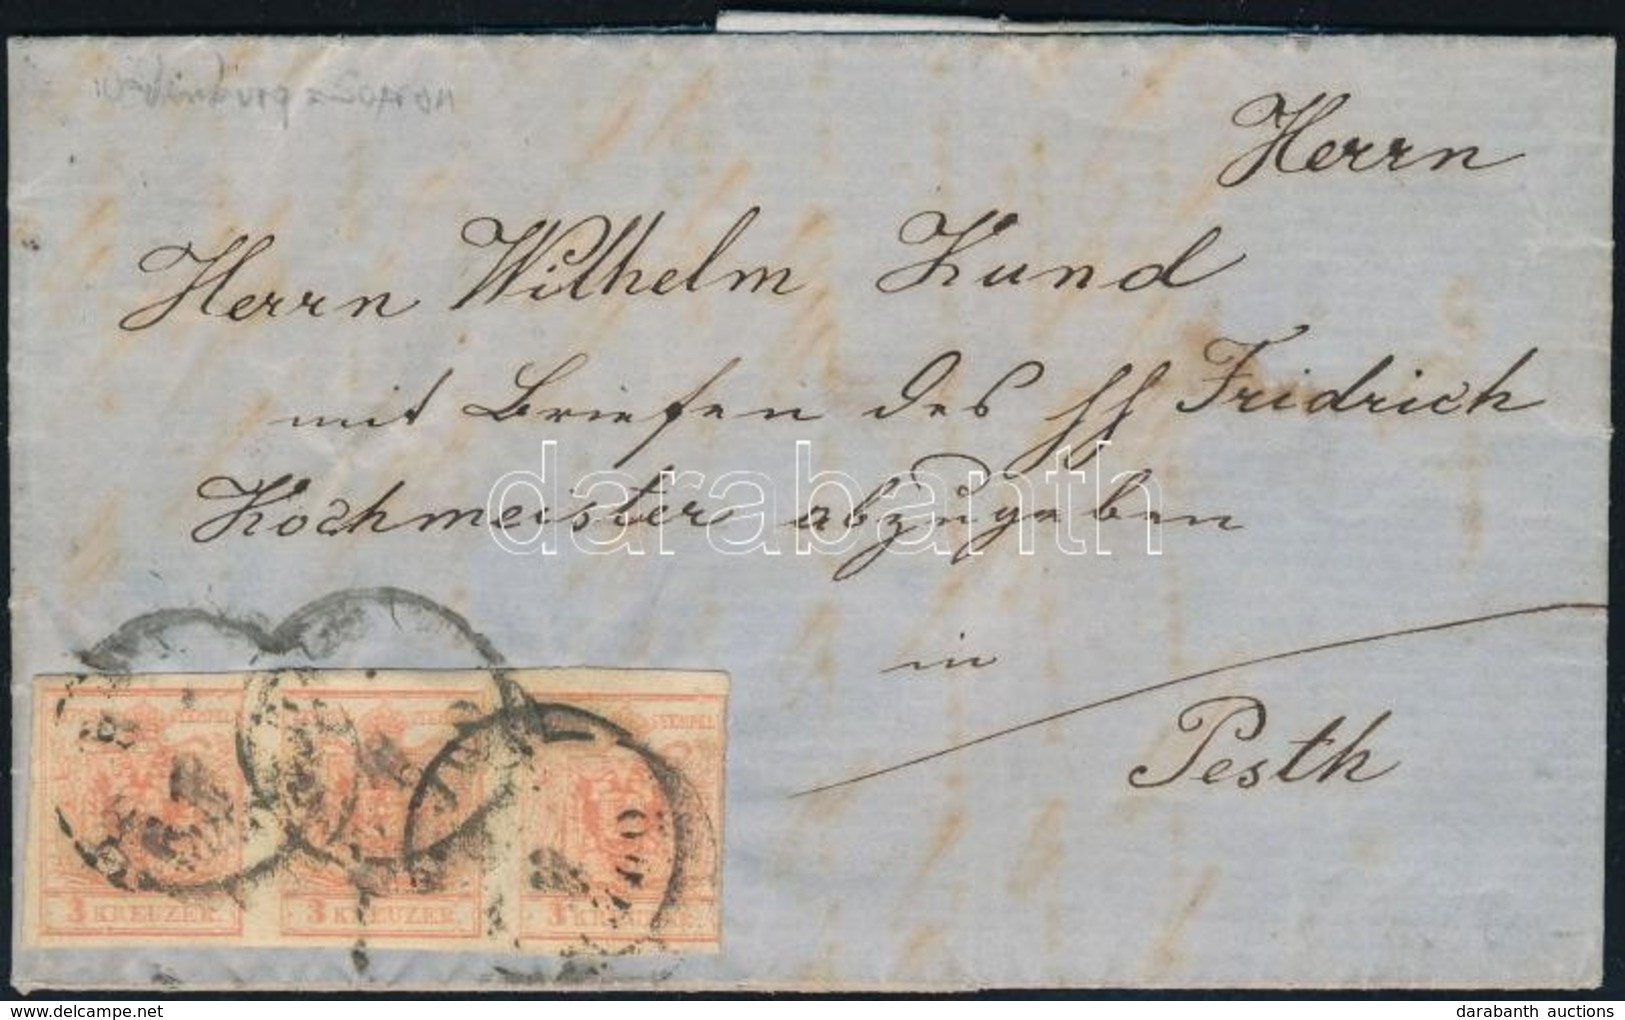 Herrn
Herrn Wilhelm Kund
mit Briefen des HH Fridrich
Kochmeister abzugeben
in
Pesth
darabanth
STEMPEL
3 KREUZER.
3 KREUZER.
3 KREUZER.
delcampe.net
darabanth auctions